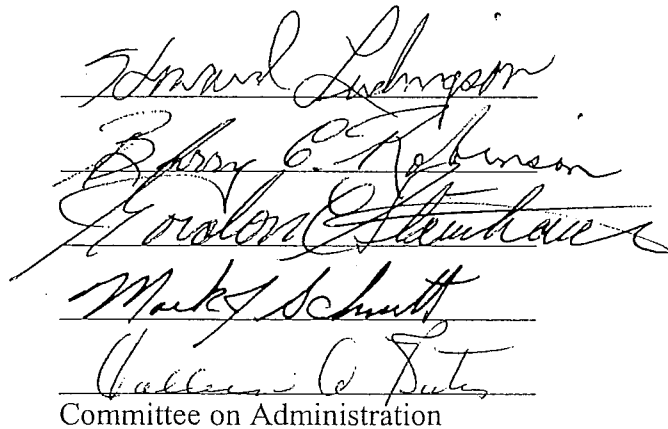 Howard Ludwigson
Barry C. Robinson
Gordon E Steinhauer
Mark J Schmitt
Committee on Administration